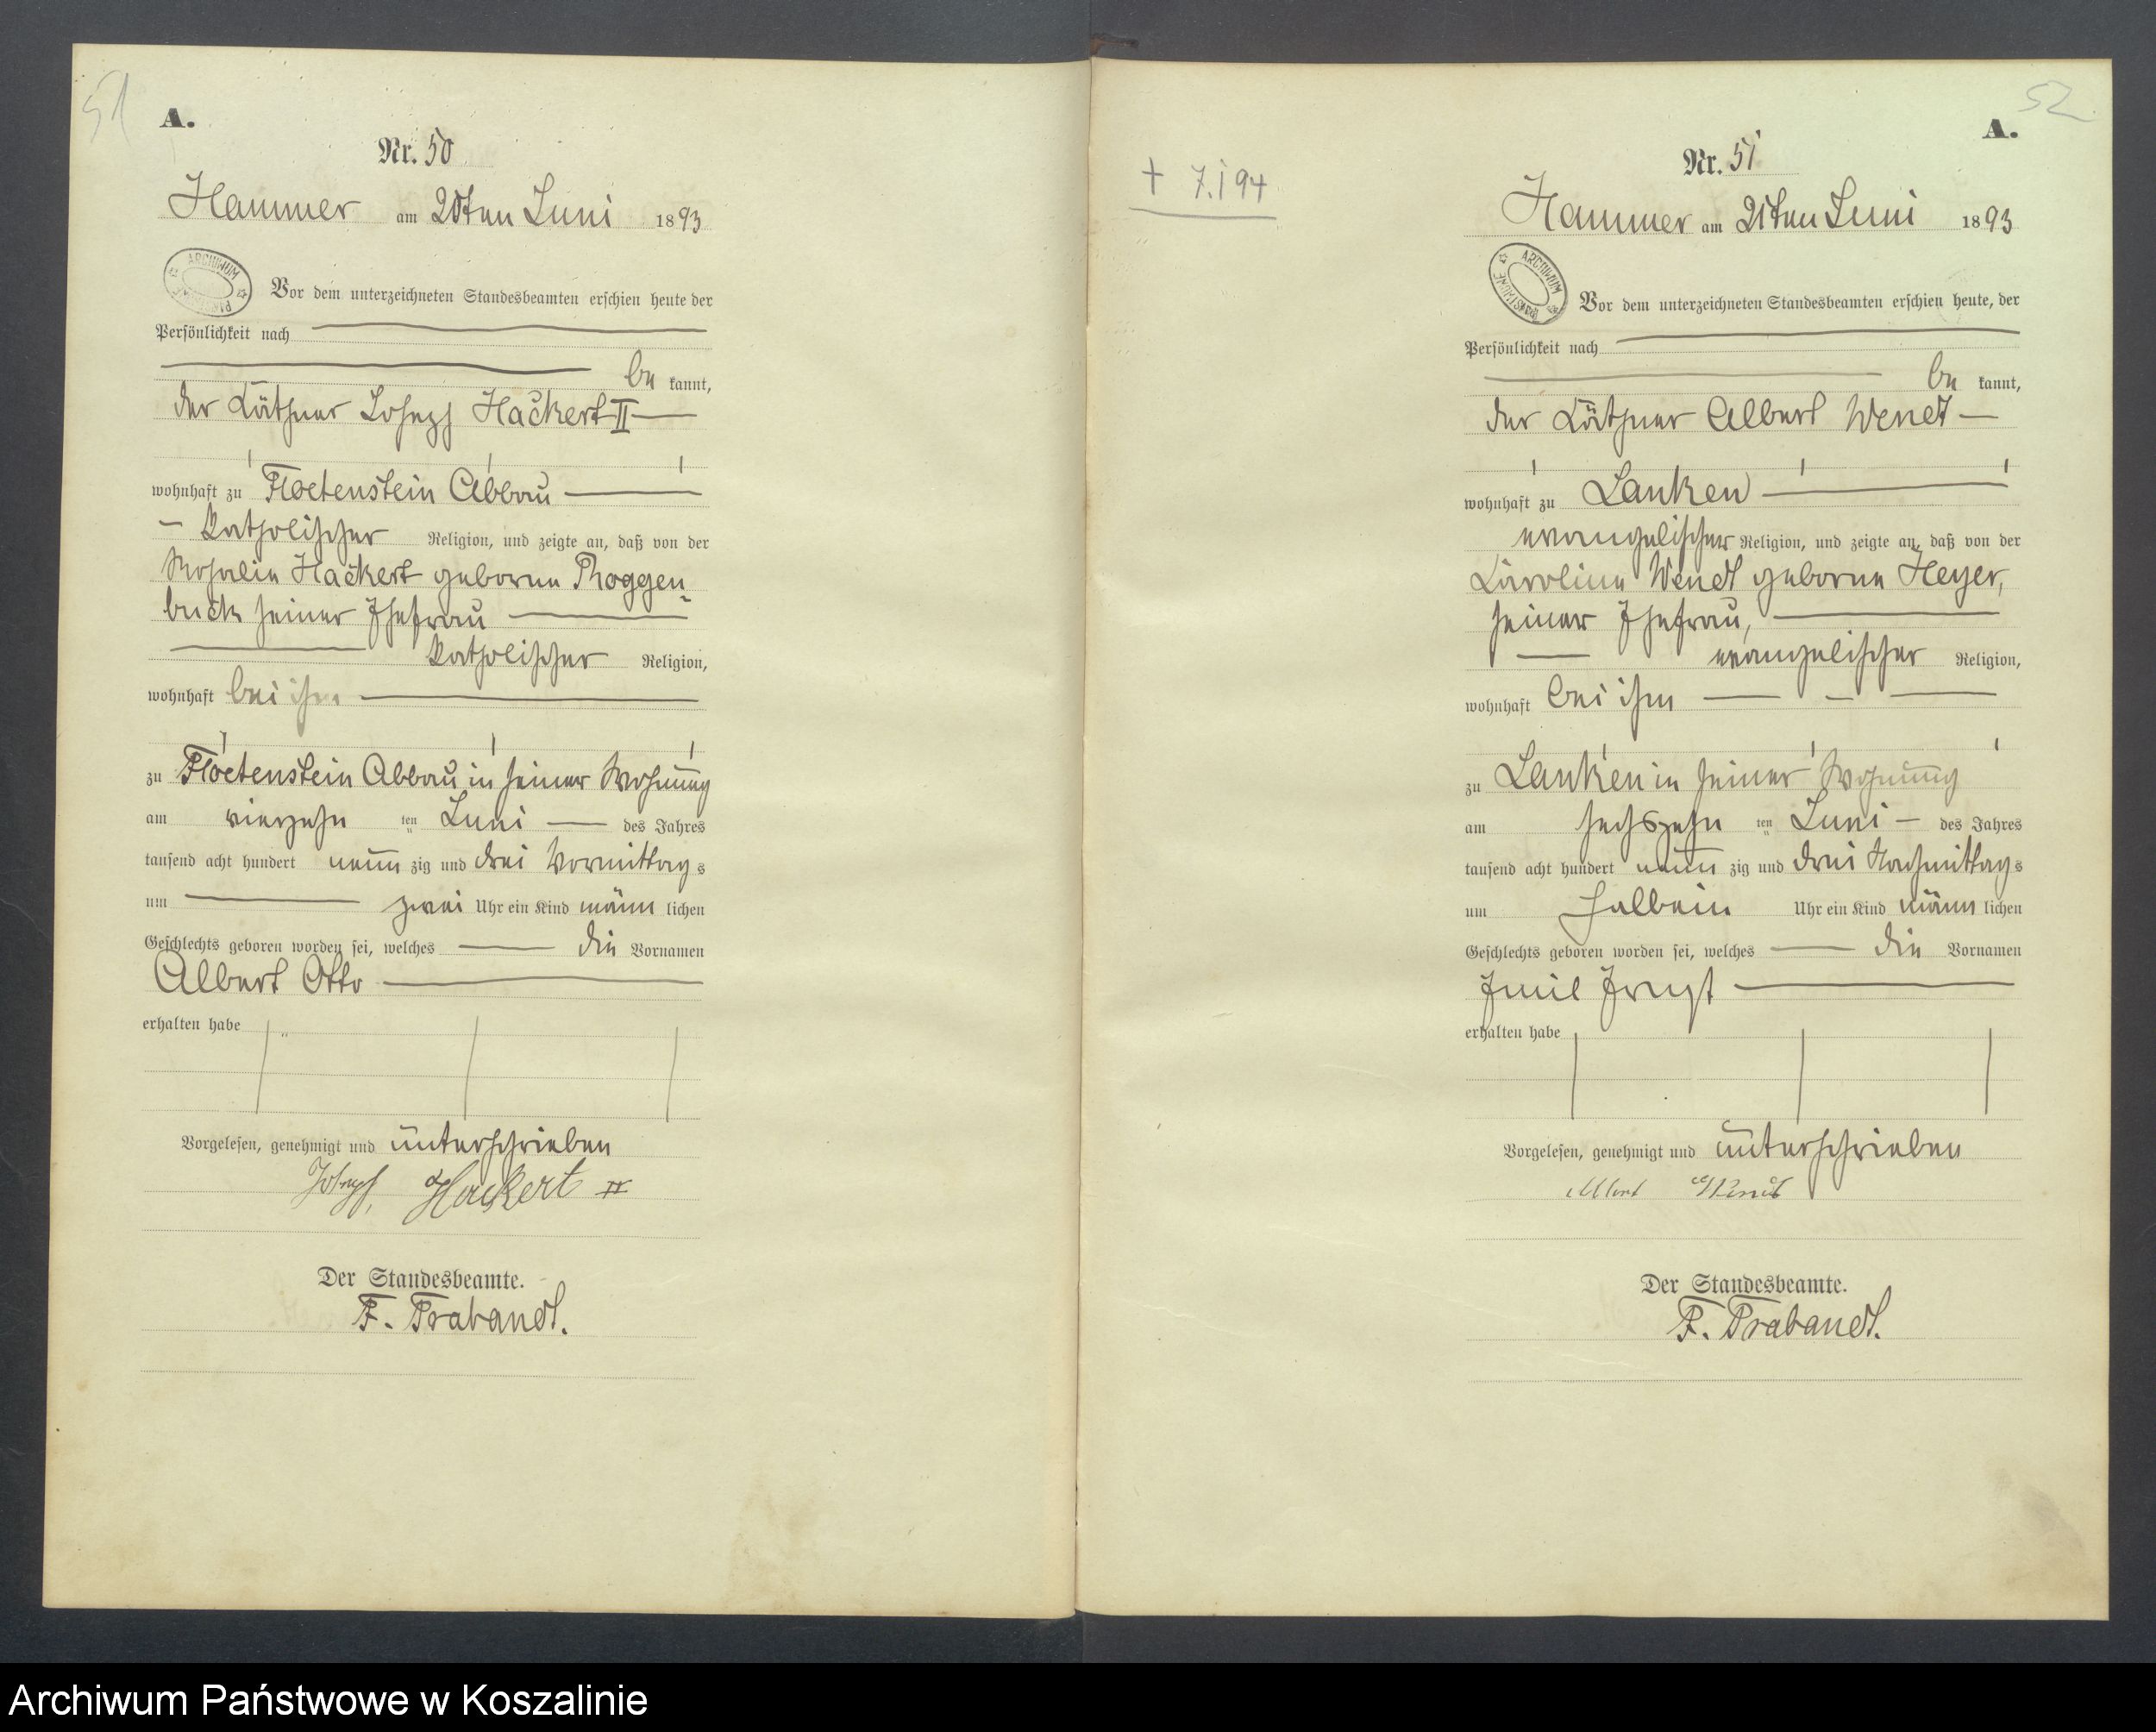 51
A.
Nr. 50
Hammer am 20ten Juni 1893
ARCHIWUM
Vor dem unterzeichneten Standesbeamten erschien heute der
Persönlichkeit nach
be kannt,
der Käthner Joseph Hackert II
wohnhaft zu Floetenstein Abbau
katholischer Religion, und zeigte an, daß von der
Rosalie Hackert geborne Roggen
buck seiner Ehefrau
katholischer Religion,
wohnhaft bei ihm
zu Floetenstein Abbau in seiner Wohnung
am vierzehn ten Juni des Jahres
tausend acht hundert neun zig und drei Vormittag s
um zwei Uhr ein Kind männ lichen
Geschlechts geboren worden sei, welches die Vornamen
Albert Otto
erhalten habe
Vorgelesen, genehmigt und unterschrieben
Joseph Hackert II
Der Standesbeamte.
F. Trabandt.
+ 7.1 94
52
A.
Nr. 51
Hammer am 21ten Juni 1893
ARCHIWUM
Vor dem unterzeichneten Standesbeamten erschien heute, der
Persönlichkeit nach
be kannt,
der Käthner Albert Wendt
wohnhaft zu Lanken
evangelischer Religion, und zeigte an, daß von der
Karoline Wendt geborne Heyer,
seiner Ehefrau,
evangelischer Religion,
wohnhaft bei ihm
zu Lanken in seiner Wohnung
am sechszehn ten Juni des Jahres
tausend acht hundert neun zig und drei Nachmittag s
um halbein Uhr ein Kind männ lichen
Geschlechts geboren worden sei, welches die Vornamen
Emil Ernst
erhalten habe
Vorgelesen, genehmigt und unterschrieben
Albert Wendt
Der Standesbeamte.
F. Trabandt.
Archiwum Państwowe w Koszalinie